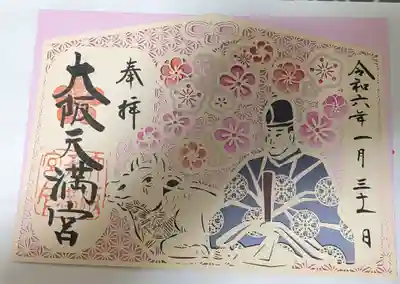 令和六年一月三十一日
奉拝
大阪天満宮